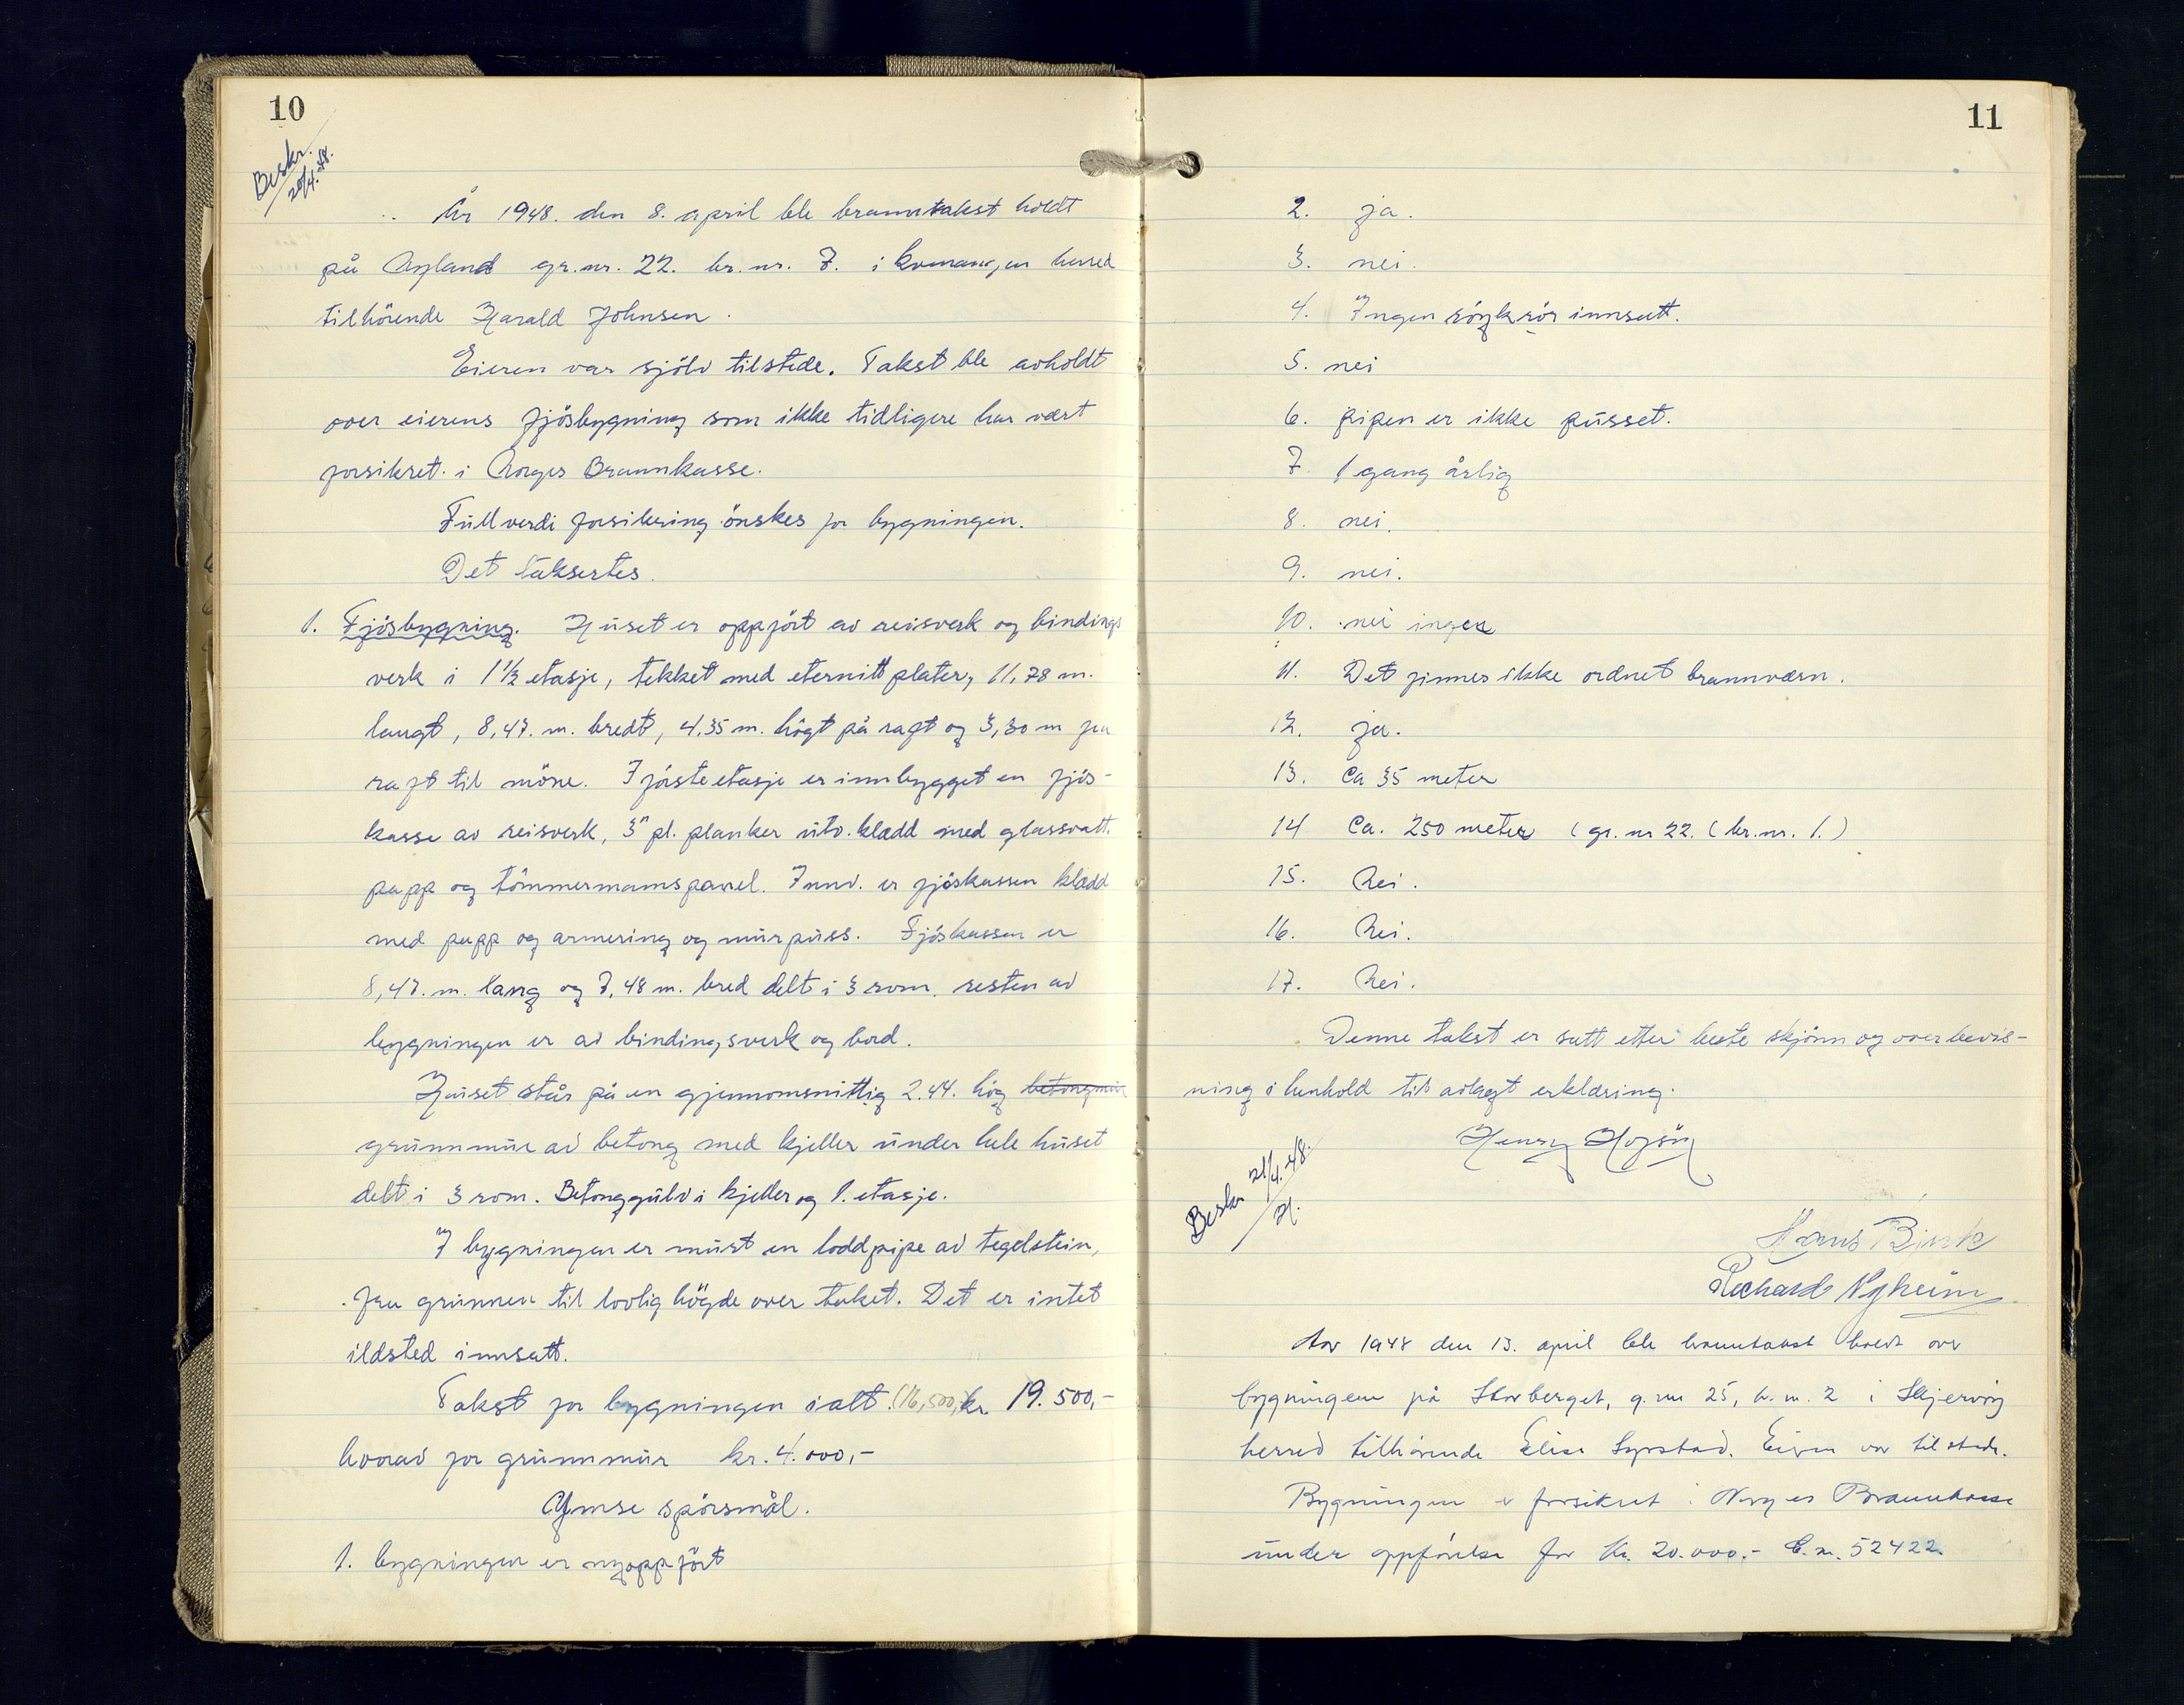 10
Beskr.
20/4.-48.
År 1948. den 8. april ble branntakst holdt
på Nyland gr.nr. 22. br.nr. 7. i Kvænangen herred
tilhörende Harald Johnsen.
Eieren var sjölv tilstede. Takst ble avholdt
over eierens fjösbygning som ikke tidligere har vært
forsikret i Norges Brannkasse.
Full verdi forsikring önskes for bygningen.
Det taksertes.
1. Fjösbygning. Huset er oppfört av reisverk og bindings
verk i 1 1/2 etasje, tekket med eternitt plater, 11,78 m.
langt, 8,47. m. bredt, 4,35 m. högt på raft og 3,30 m fra
raft til möne. I förste etasje er innbygget en fjös-
kasse av reisverk, 3" pl. planker utv. kledd med glassvatt.
papp og tömmermannspanel. Innv. er fjöskassen kledd
med papp og armering og murpuss. Fjöskassen er
8,47. m. lang og 7,48 m. bred delt i 3 rom. resten av
bygningen er av bindingsverk og bord.
Huset står på en gjennomsnittlig 2.44. hög betongmur
grunnmur av betong med kjeller under hele huset
delt i 3 rom. Betonggulv i kjeller og 1. etasje.
I bygningen er murt en loddpipe av tegelstein,
fra grunnen til lovlig högde over taket. Det er intet
ildsted innsatt.
Takst for bygningen ialt. (16,500,) kr. 19.500,-
hvorav for grunnmur kr. 4.000,-
Ymse spörsmål.
1. bygningen er nyoppfört
11
2. ja.
3. nei.
4. Ingen röykrör innsatt.
5. nei
6. pipen er ikke pusset.
7. 1 gang årlig
8. nei.
9. nei.
10. nei ingen
11. Det finnes ikke ordnet brannværn.
12. ja.
13. Ca 35 meter
14 Ca. 250 meter (gr. nr 22. (br. nr. 1.)
15. Nei.
16. Nei.
17. Nei.
Denne takst er satt etter beste skjönn og overbevis-
ning i henhold til avlagt erklæring.
Henry
Beskr 21/4.-48.
H.
Hans
Richard Nyheim
Aar 1948 den 13. april ble branntakst holdt over
bygningene på Storberget, g. nr 25, b. nr. 2 i Skjervöy
herred tilhörende Elise Eieren var tilstede.
Bygningen er forsikret i Norges Brannkasse
under oppförelse for Kr. 20.000.- B. nr. 52422.